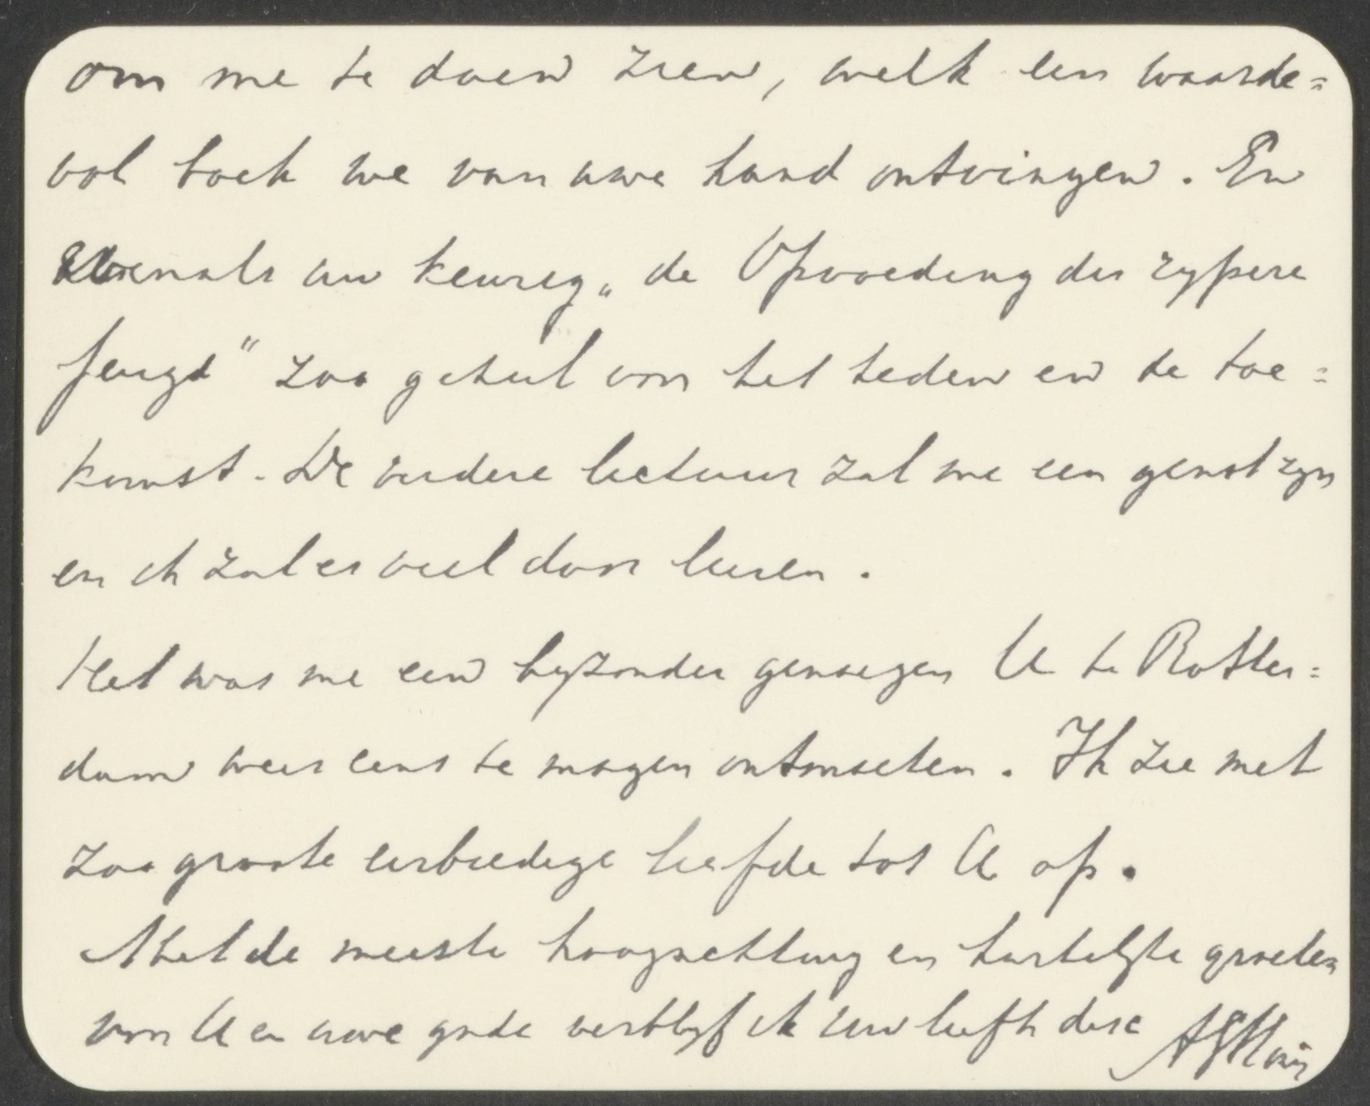 om me te doen zien, welk een waarde=
vol boek we van uwe hand ontvingen. En
evenals uw keurig „de Opvoeding der rypere
jeugd" zoo geheel van het heden en de toe=
komst. De verdere lectuur zal me een genot zyn
en ik zal er veel door leeren.
Het was me een byzonder genoegen U te Rotter=
dam weer eens te mogen ontmoeten. Ik zie met
zoo groote eerbiedige liefde tot U op.
Met de meeste hoogachting en hartelyke groeten
van U en uwe gade verblyf ik uw liefh